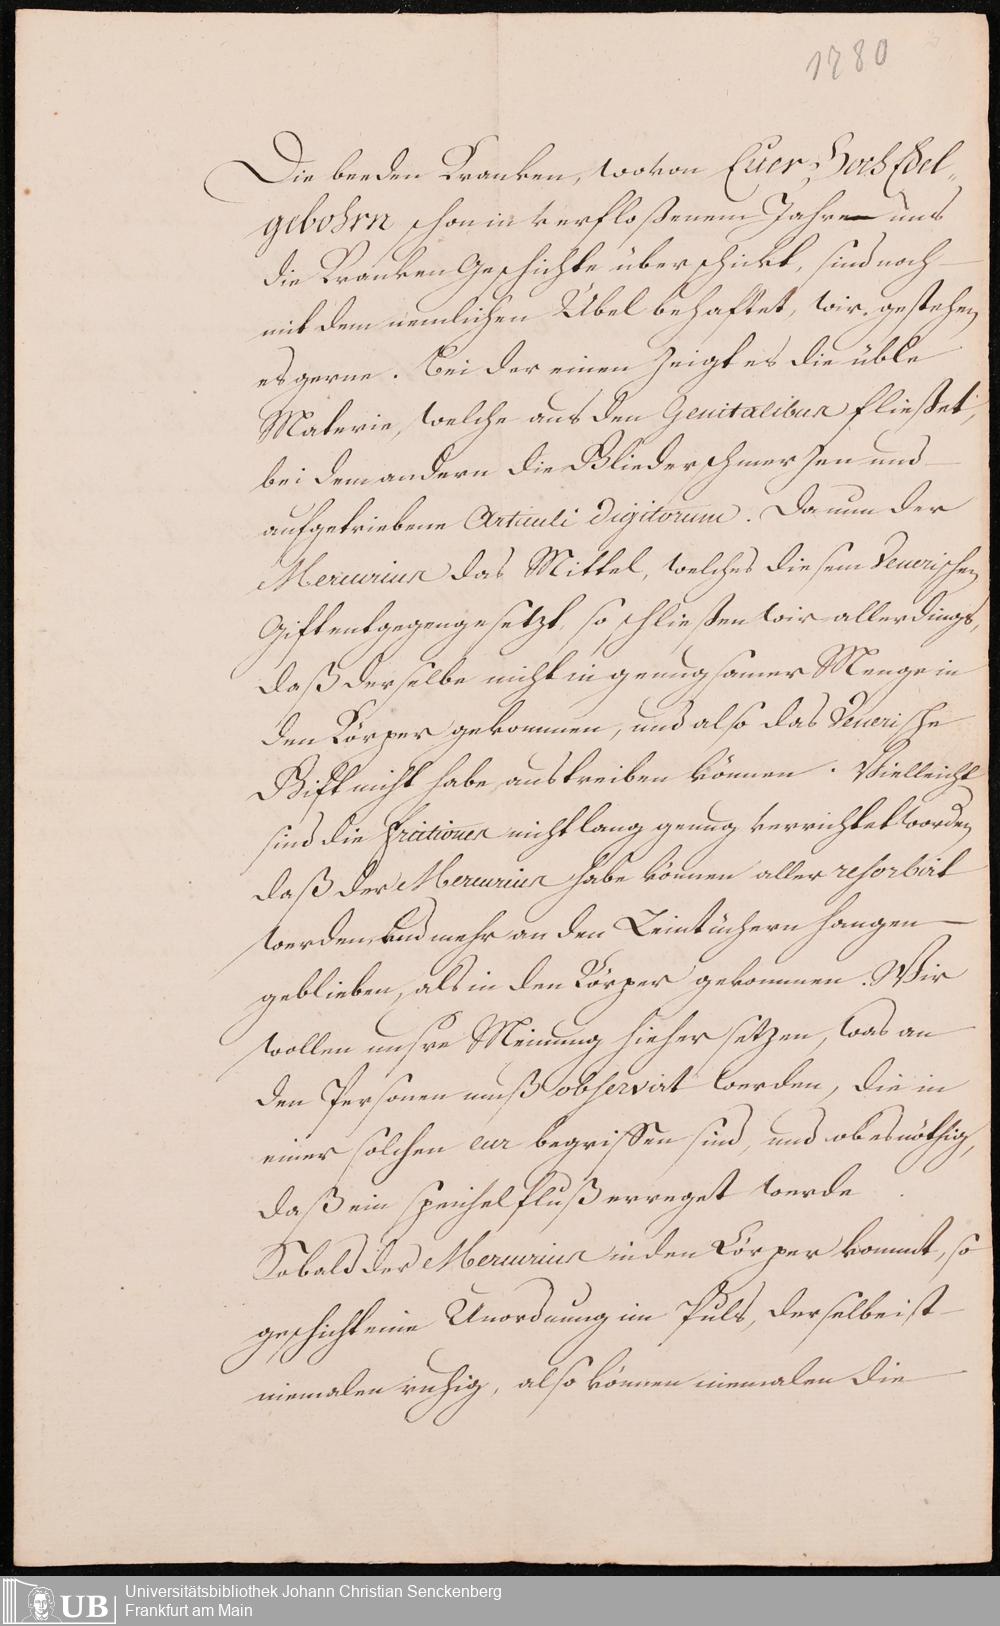 1780
Die beeden Kranken, wovon Euer HochEdel„
gebohrn schon in verfloßenem Jahre uns
die Kranken Geschichte überschickt, sind noch
mit dem nemlichen Übel behaftet, wir gestehen
es gerne. Bei der einen zeigt es die üble
Materie, welche aus den Genitalibus fließet,
bei dem andern die Gliederschmerzen und
aufgetriebene Articuli digitorum. Da nun der
Mercurius das Mittel, welches diesem Venerischen
Gift entgegengesetzt, so schließen wir allerdings,
daß derselbe nicht in genugsamer Menge in
den Körper gekommen, und also das Venerische
Gift nicht habe austreiben können. Vielleicht
sind die frictiones nicht lang genug verrichtet worden
daß der Mercurius habe können aller resorbirt
werden, und mehr an den Leintüchern hangen
geblieben, als in den Körper gekommen. Wir
wollen unsre Meinung hieher setzen, was an
den Personen muß observirt werden, die in
einer solchen cur begriffen sind, und ob es nöthig,
daß ein Speichelfluß erreget werde
Sobald der Mercurius in den Körper kommt, so
geschicht eine Unordnung im Puls, derselbe ist
niemalen ruhig, also können niemalen die
UB
Universitätsbibliothek Johann Christian Senckenberg
Frankfurt am Main